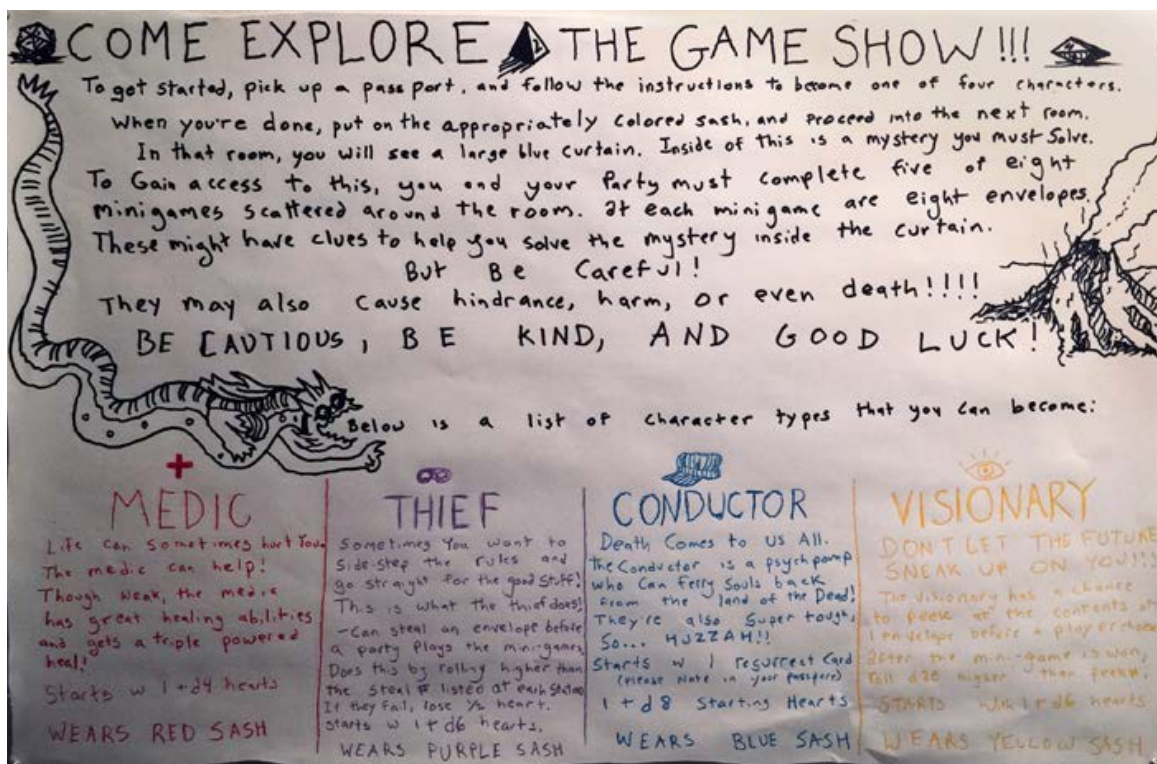 COME EXPLORE THE GAME SHOW!!!
To get started, pick up a pass port, and follow the instructions to become one of four characters.
When you're done, put on the appropriately colored sash, and proceed into the next room.
In that room, you will see a large blue curtain. Inside of this is a mystery you must solve.
To Gain access to this, you and your Party must complete five of eight
minigames scattered around the room. At each minigame are eight envelopes.
These might have clues to help you solve the mystery inside the curtain.
But Be Careful!
They may also cause hindrance, harm, or even death!!!!
BE CAUTIOUS, BE KIND, AND GOOD LUCK!
Below is a list of character types that you can become:
MEDIC
Life can sometimes hurt You.
The medic can help!
Though weak, the medic
has great healing abilities
and gets a triple powered
heal!
Starts w 1+d4 hearts
WEARS RED SASH
THIEF
Sometimes You want to
Side-step the rules and
go straight for the good stuff!
This is what the thief does!
-Can steal an envelope before
a party plays the mini-games
Does this by rolling higher than
the steal # listed at each station
If they fail, lose 1/2 heart.
Starts w 1+d6 hearts.
WEARS PURPLE SASH
CONDUCTOR
Death Comes to Us All.
the Conductor is a psychpomp
who Can ferry Souls back
from the land of the Dead!
They're also Super tough,
So... HUZZAH!!
Starts w 1 resurrect Card
(please Note in your passport)
1+d8 Starting Hearts
WEARS BLUE SASH
VISIONARY
DON'T LET THE FUTURE
SNEAK UP ON YOU!!!
The visionary has a chance
to peek at the contents of
1 envelope before a player
After the mini-game is won,
roll d20 higher than
STARTS w 1+d6 hearts
WEARS YELLOW SASH